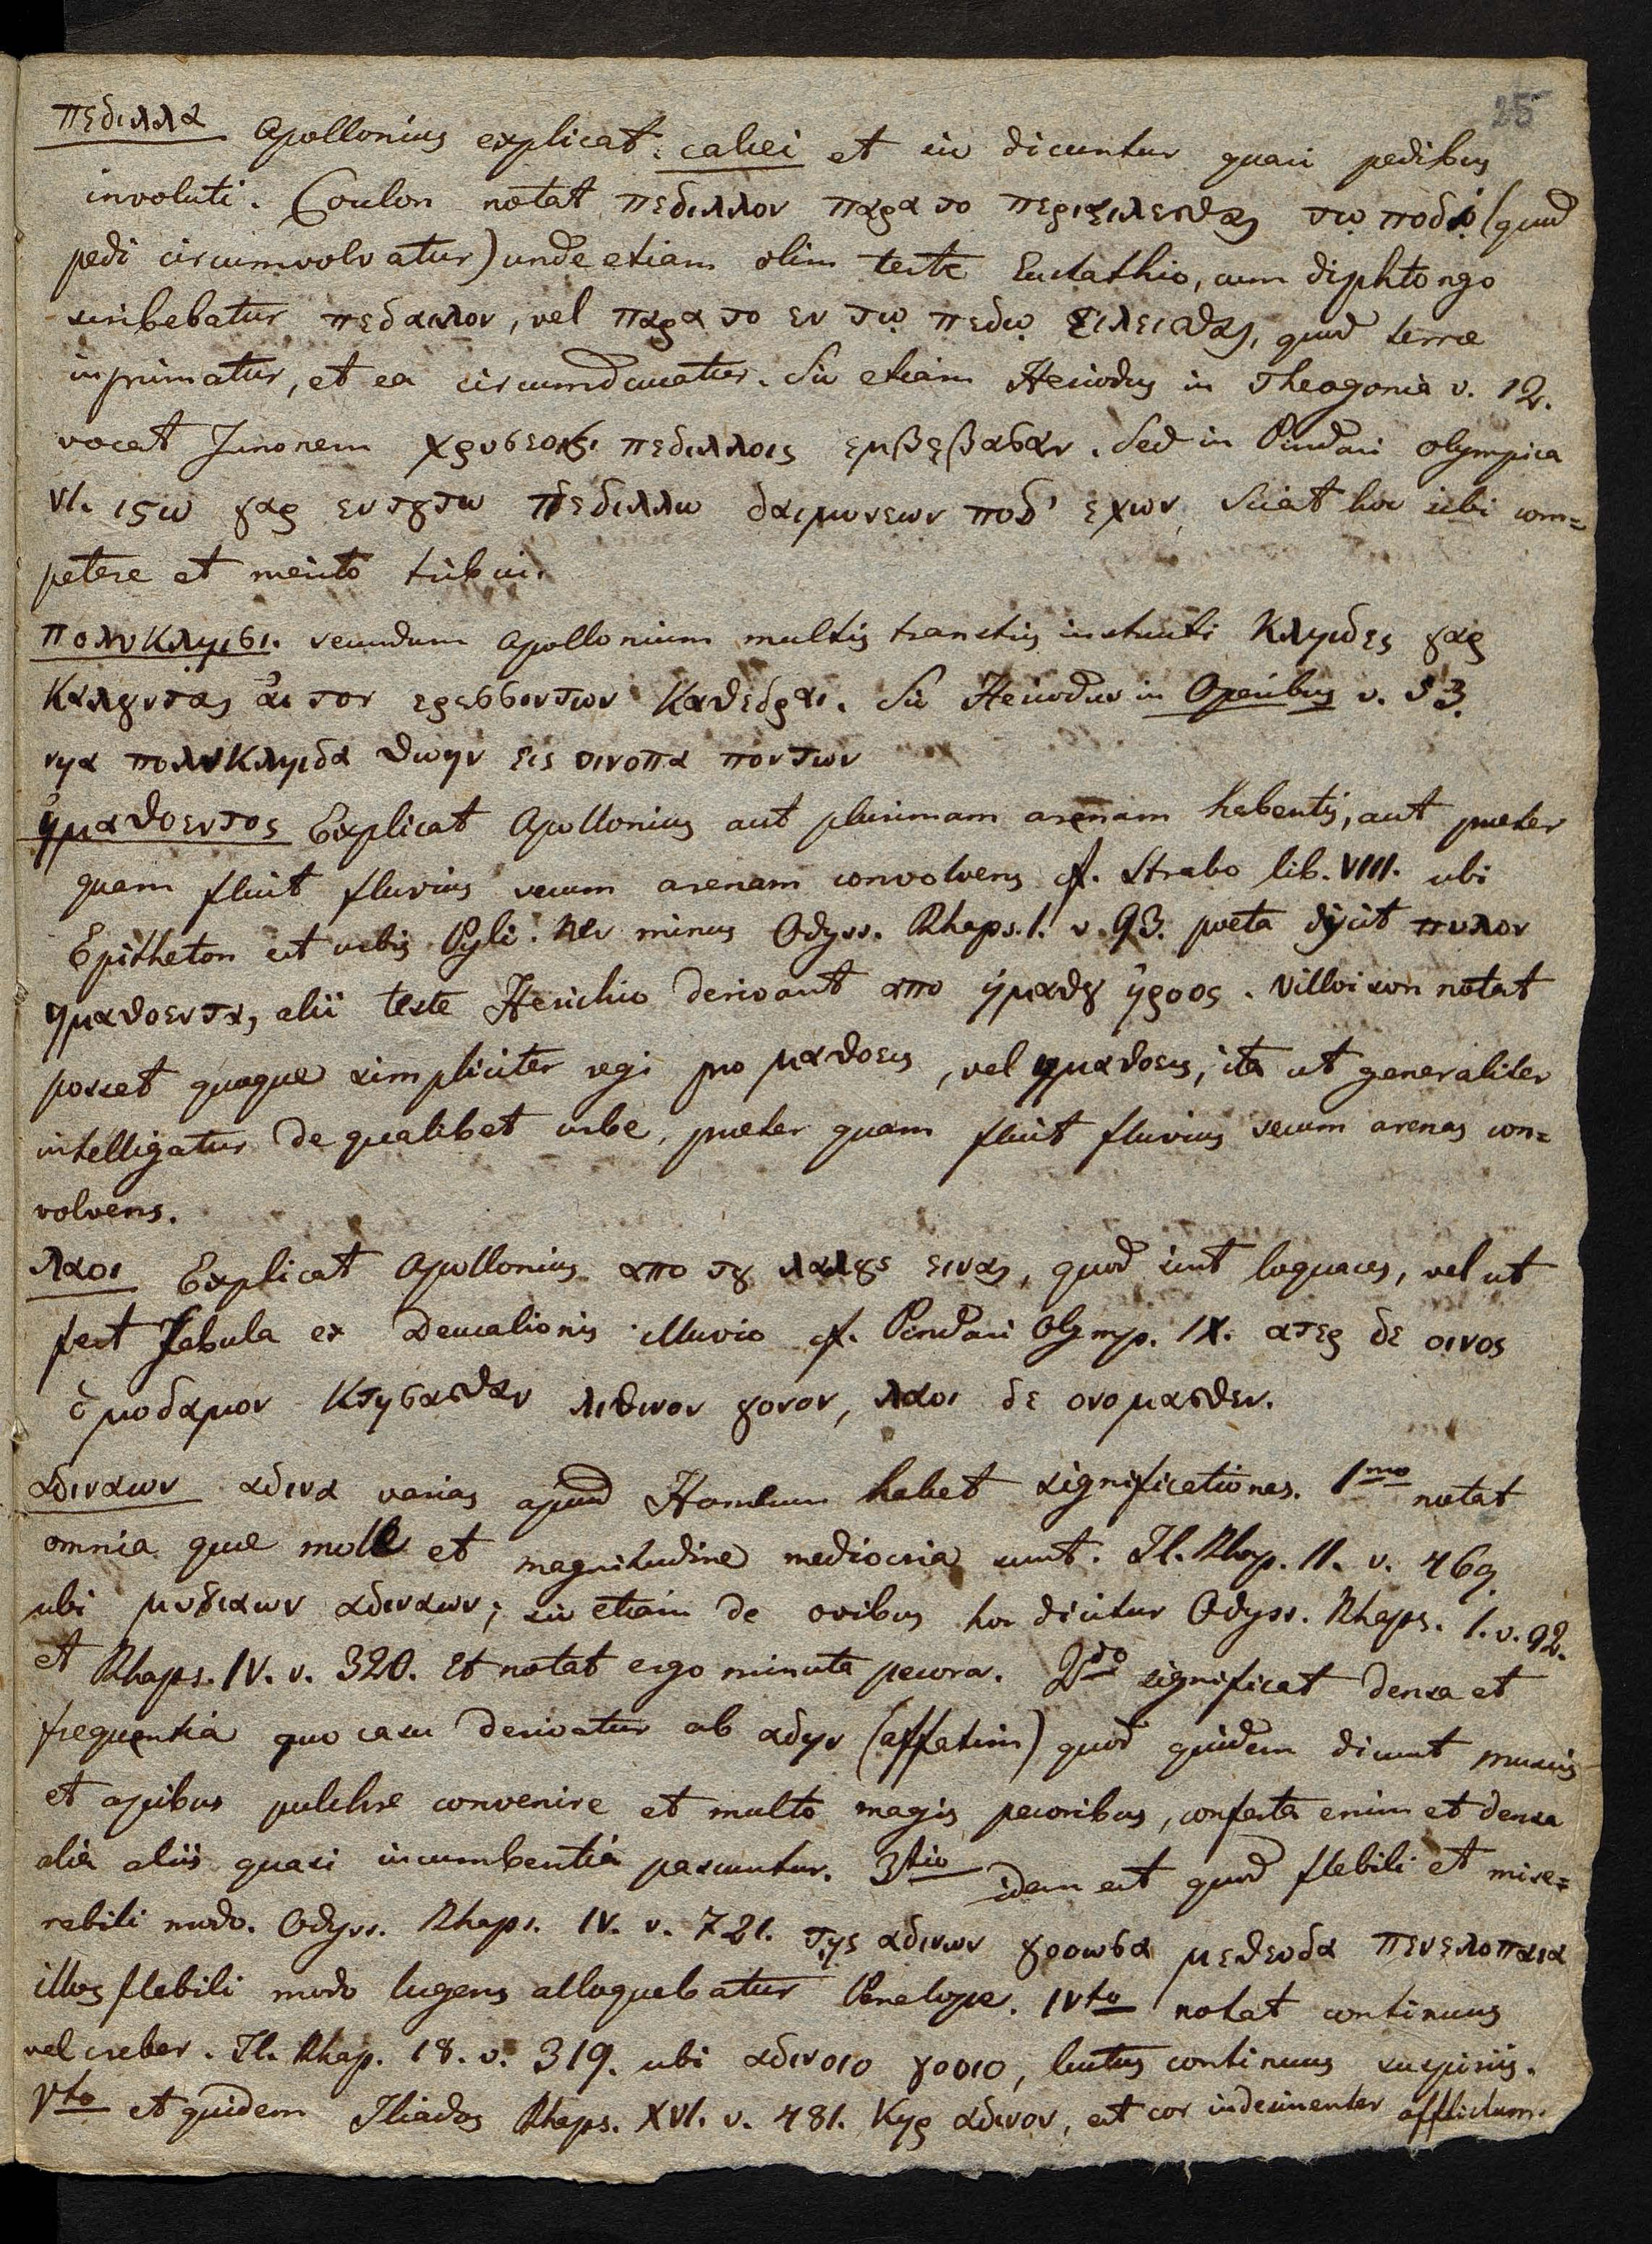 25
πεδιλλα Apollonius explicat: calcei et sic dicuntur quasi pedibus
involuti. Coulon notat πεδιλλον παρα το περιειλεισθαι τω ποδι (quod
pedi circumvolvatur) unde etiam olim teste Eustathio, cum diphtongo
scribebatur πεδαιλον, vel παρα το εν τῳ πεδῳ ειλεισθαι, quod terræ
inprimatur, et ea circumducatur. Sic etiam Hesiodus in Theogonia v. 12.
vocat Junonem χρυσεοις πεδιλλοις εμβεβασαν. Sed in Pindari olympica
VI. ιςω γαρ εν τȣτω πεδιλλω δαιμονεων ποδ' εχων, Sciat hoc sibi com=
petere et merito tribui.
πολυκληισι. secundum Apollonium multis transtris instructi Κληιδες γαρ
καλȣνται ἁι τον ερεσσοντων καθεδραι. Sic Hesiodus in Operibus v. 53.
νηα πολυκληιδα θωην εις οινοπα ποντων
ἠμαθοεντος Explicat Apollonius aut plurimam arenam habentis, aut præter
quam fluit fluvius secum arenam convolvens cf. Strabo lib. VIII. ubi
Epitheton est urbis Pyli. Nec minus Odyss. Rhaps. I. v. 93. poeta dicit πυλον
ημαθοεντα, alii teste Hesichio derivant απο ἠμαθȣ ηροος. Villoison notat
posset quoque simpliciter regi pro μαθοεις, vel ημαθοεις, ita ut generaliter
intelligatur de qualibet urbe, præter quam fluit fluvius secum arenas con=
volvens.
λαοι Explicat Apollonius απο τȣ λαλȣς ειναι, quod sint loquaces, vel ut
fert fabula ex Deucalionis illuvio cf. Pindari Olymp. IX. ατερ δε οινος
ὁμοδαμον κτησασθαν λιθινον γονον, λαοι δε ονομασθεν.
αδιναων αδινα varias apud Homerum habet significationes. 1mo notat
omnia quæ mole et magnitudine mediocria sunt. Il. Rhap. II. v. 469
ubi μυγιαων αδιναων; sic etiam de ovibus hoc dicitur Odyss. Rhaps. I. v. 92.
et Rhaps. IV. v. 320. Et notat ergo minuta pecora. 2do significat densa et
frequentia quo casu derivatur ab αδην (affatim) quod quidem dicunt muscis
et apibus pulchre convenire et multo magis pecoribus, conferta enim et densa
alia aliis quasi incumbentia pascuntur. 3tio idem est quod flebili et mise=
rabili modo. Odyss. Rhaps. IV. v. 721. της αδινων γοοωσα μεθευδα πενελοπαια
illos flebili modo lugens alloquebatur Penelope. IVto notat continuus
vel creber. Il. Rhap. 18. v. 319. ubi αδινοιο γοοιο, luctus continuus suspiriis.
Vto et quidem Iliados Rhaps. XVI. v. 481. Κηρ αδινον, est cor indesinenter afflictum.